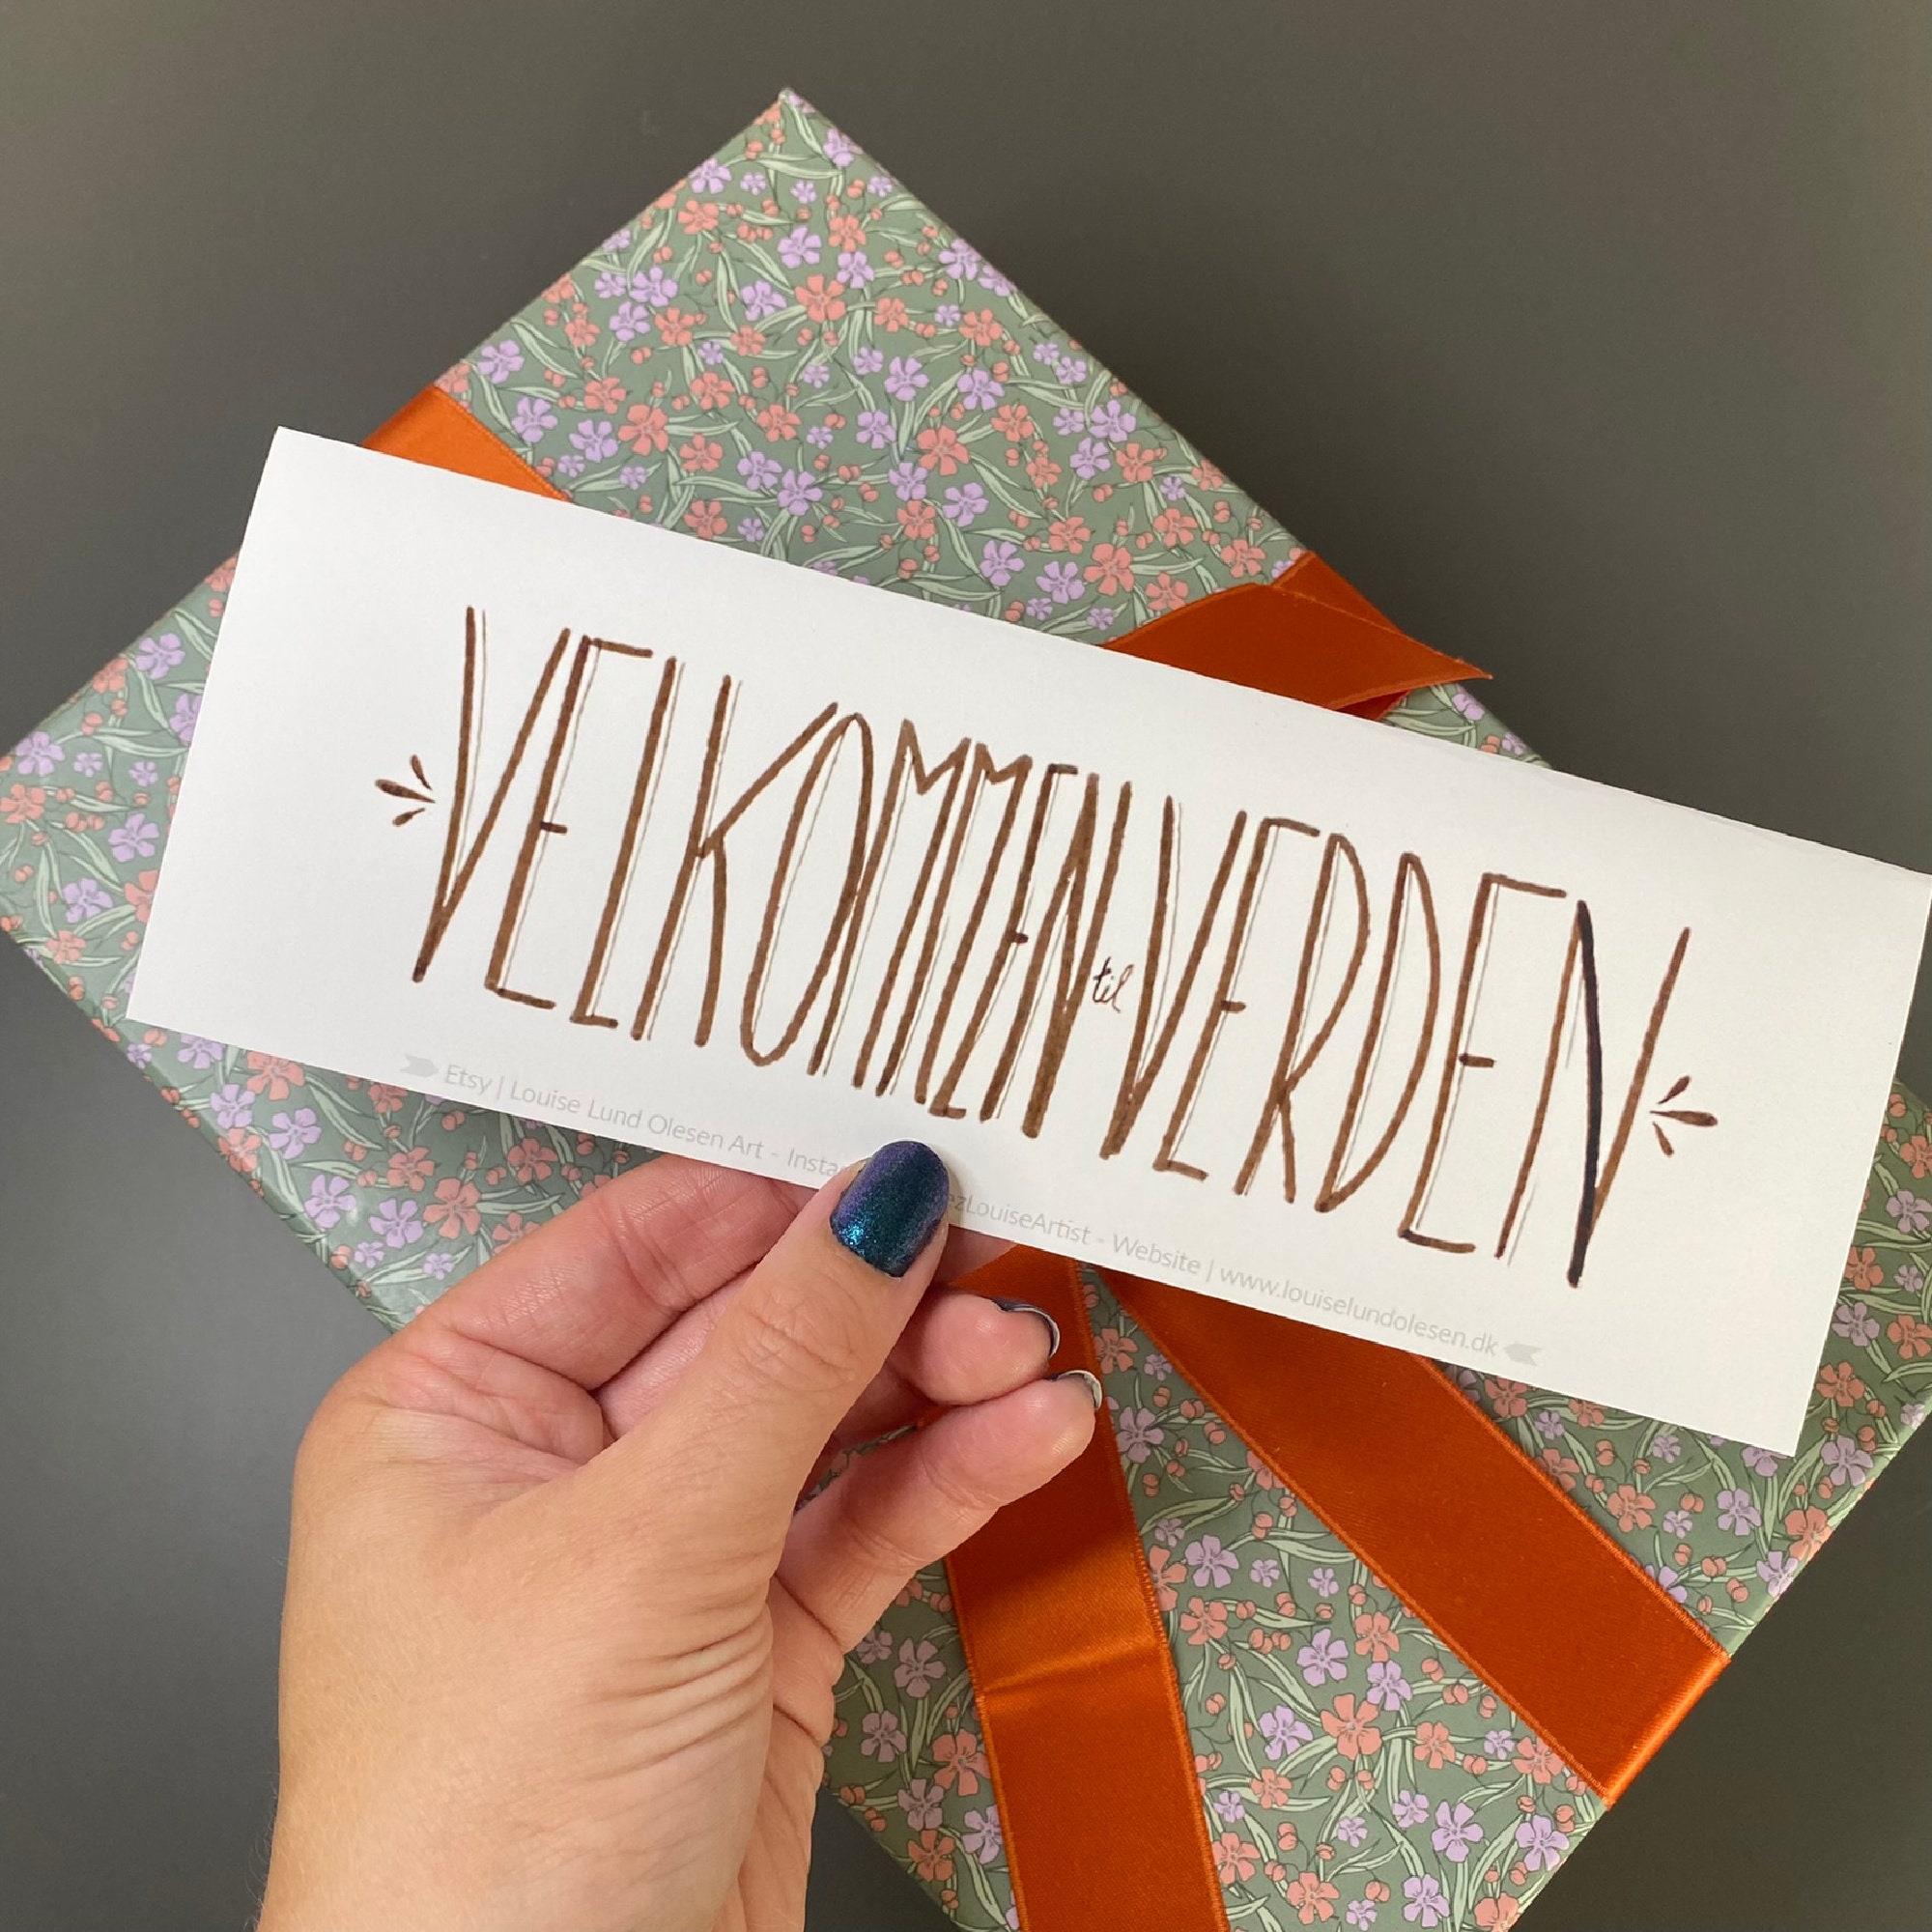 VELKOMMEN til VERDEN
Etsy | Louise Lund Olesen Art - Website | www.louiselundolesen.dk